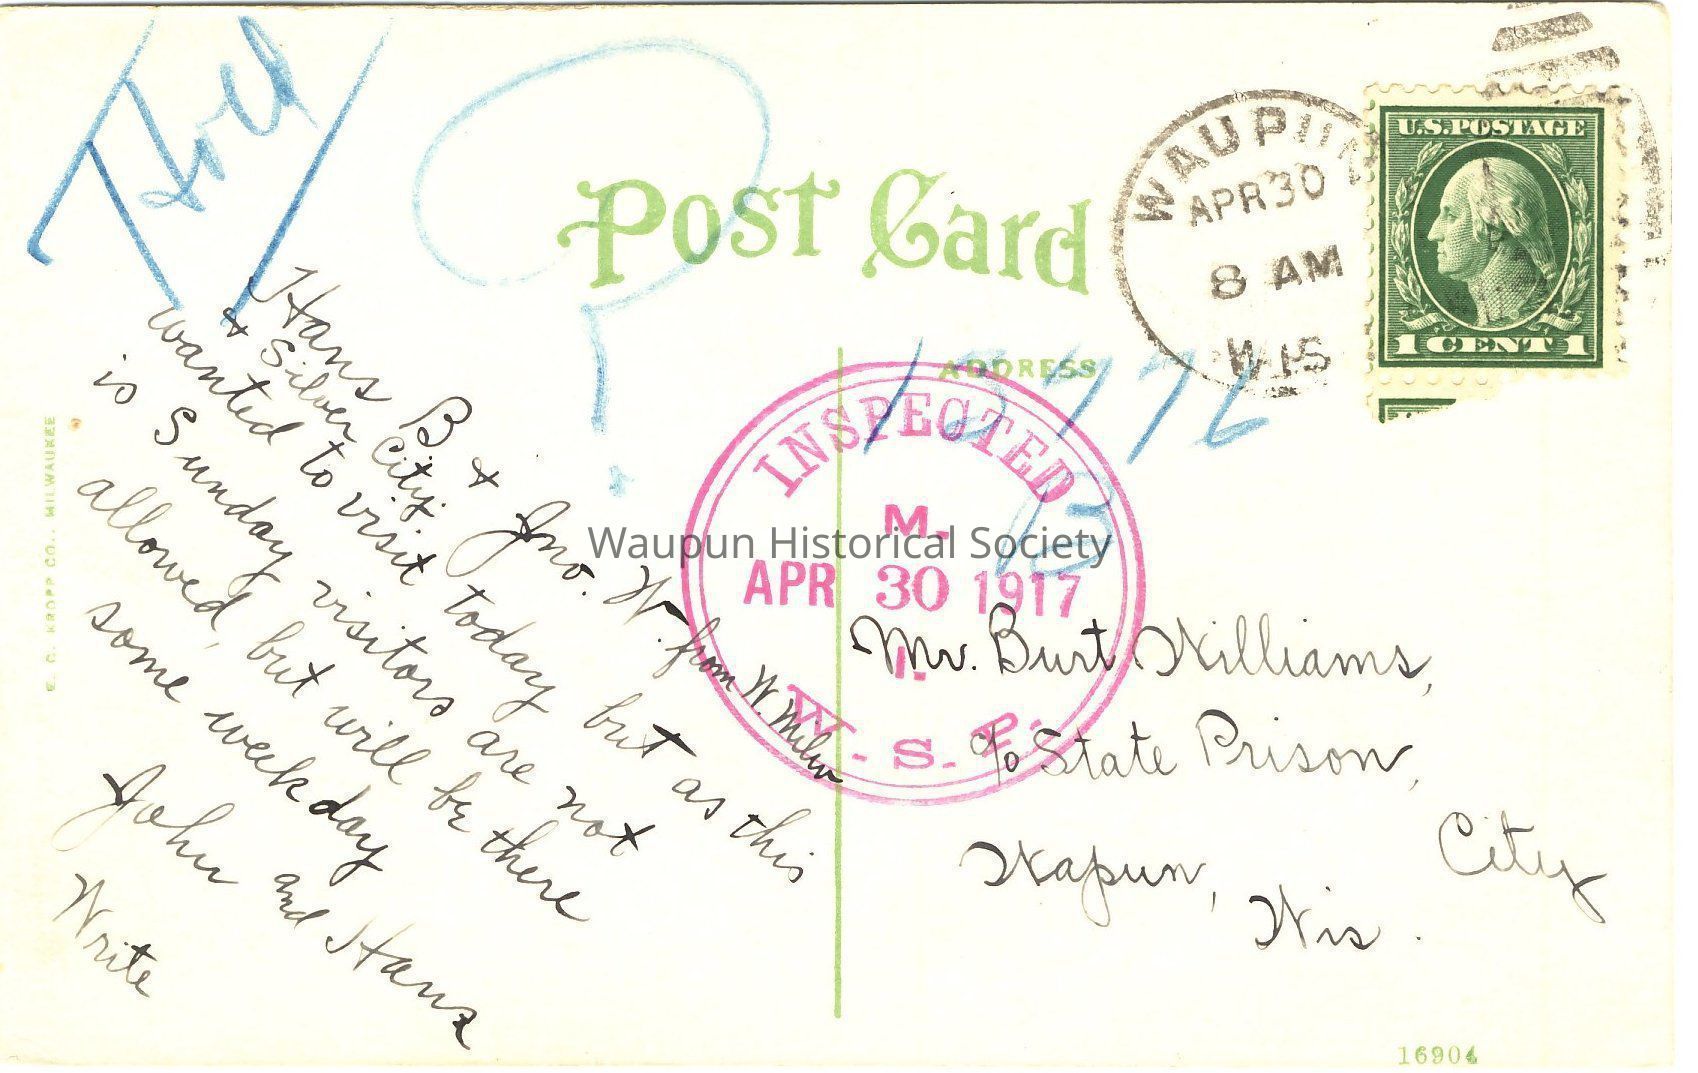 Post Card
ADDRESS
WAUPUN
APR 30
8 AM
WIS
U.S. POSTAGE
1 CENT 1
INSPECTED
M.
APR 30 1917
I.
W. S. P.
Waupun Historical Society
Hans B + Jno. W. from W. Milw
+ Silver City.
wanted to visit today but as this
is Sunday visitors are not
allowed, but will be there
some week day
John and Hans
Write
Mr. Burt Williams,
c/o State Prison,
City
Wapun,
Wis.
E. C. KROPP CO., MILWAUKEE
16904